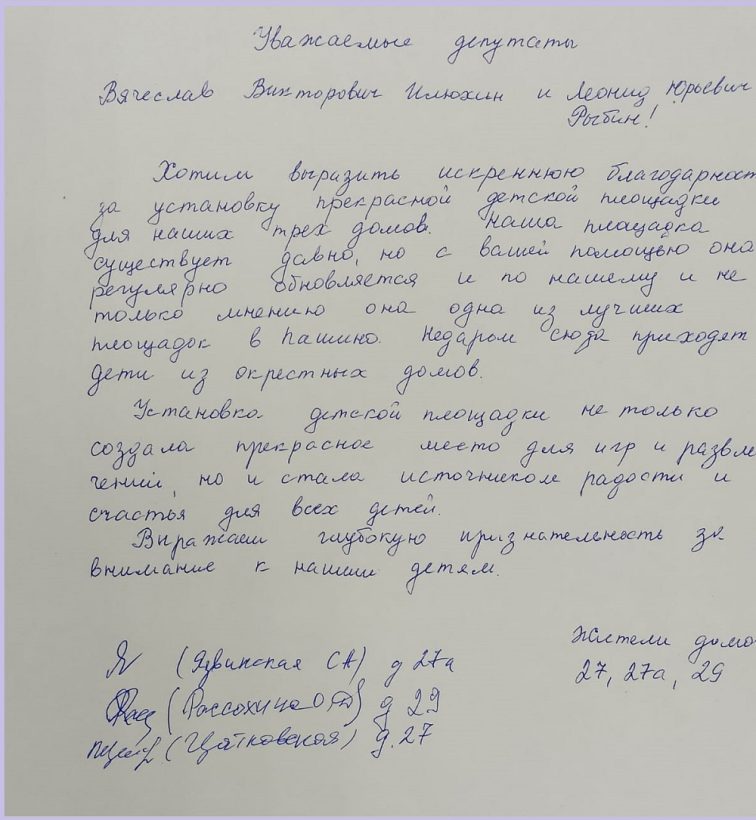 Уважаемые депутаты
Вячеслав Викторович Илюхин и Леонид Юрьевич
Рыбин!
Хотим выразить искреннюю благодарност
за установку прекрасной детской площадки
для наших трех домов. Наша площадка
существует давно, но с вашей помощью она
регулярно обновляется и по нашему и не
только мнению она одна из лучших
площадок в Пашино. Недаром сюда приходят
дети из окрестных домов.
Установка детской площадки не только
создала прекрасное место для игр и развле
чений, но и стала источником радости и
счастья для всех детей.
Выражаем глубокую признательность за
внимание к нашим детям.
Жители домо
27, 27а, 29
(Язвинская СА) д 27а
(Рассохина) д 29
(Цятковская) д. 27